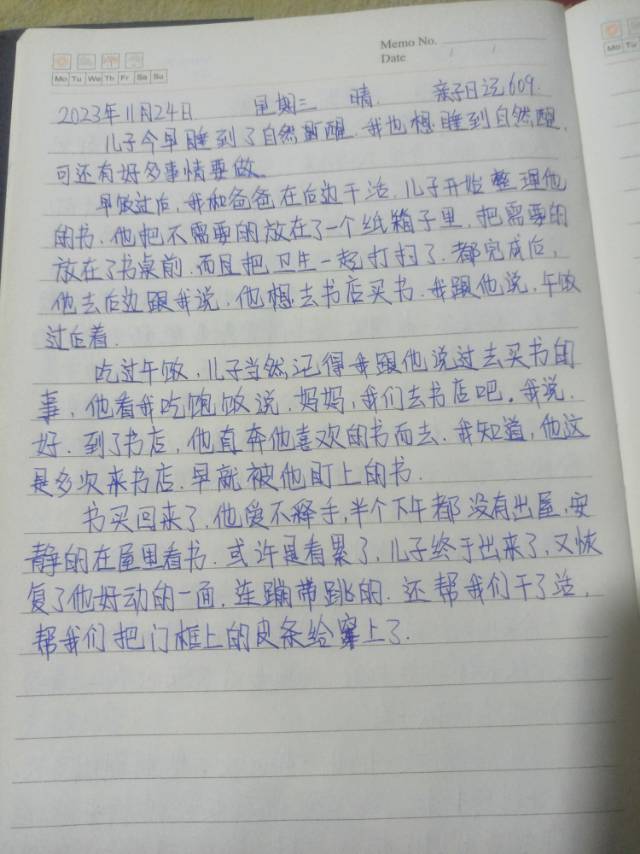 Memo No.
Date
Mo Tu We Th Fr Sa Su
Mo Tu
2023年11月24日 星期三 晴. 亲子日记609.
儿子今早睡到了自然醒.我也想睡到自然醒,
可还有好多事情要做.
早饭过后,我和爸爸在后边干活,儿子开始整理他
的书.他把不需要的放在了一个纸箱子里,把需要的
放在了书桌前.而且把卫生一起打扫了.都完成后,
他去后边跟我说,他想去书店买书.我跟他说,午饭
过后着.
吃过午饭,儿子当然记得我跟他说过去买书的
事,他看我吃饱饭说.妈妈,我们去书店吧。我说.
好.到了书店,他直奔他喜欢的书而去.我知道,他这
是多次来书店.早就被他盯上的书.
书买回来了.他爱不释手,半个下午都没有出屋,安
静的在屋里看书.或许是看累了,儿子终于出来了,又恢
复了他好动的一面,连蹦带跳的.还帮我们干了活,
帮我们把门框上的皮条给塞上了.